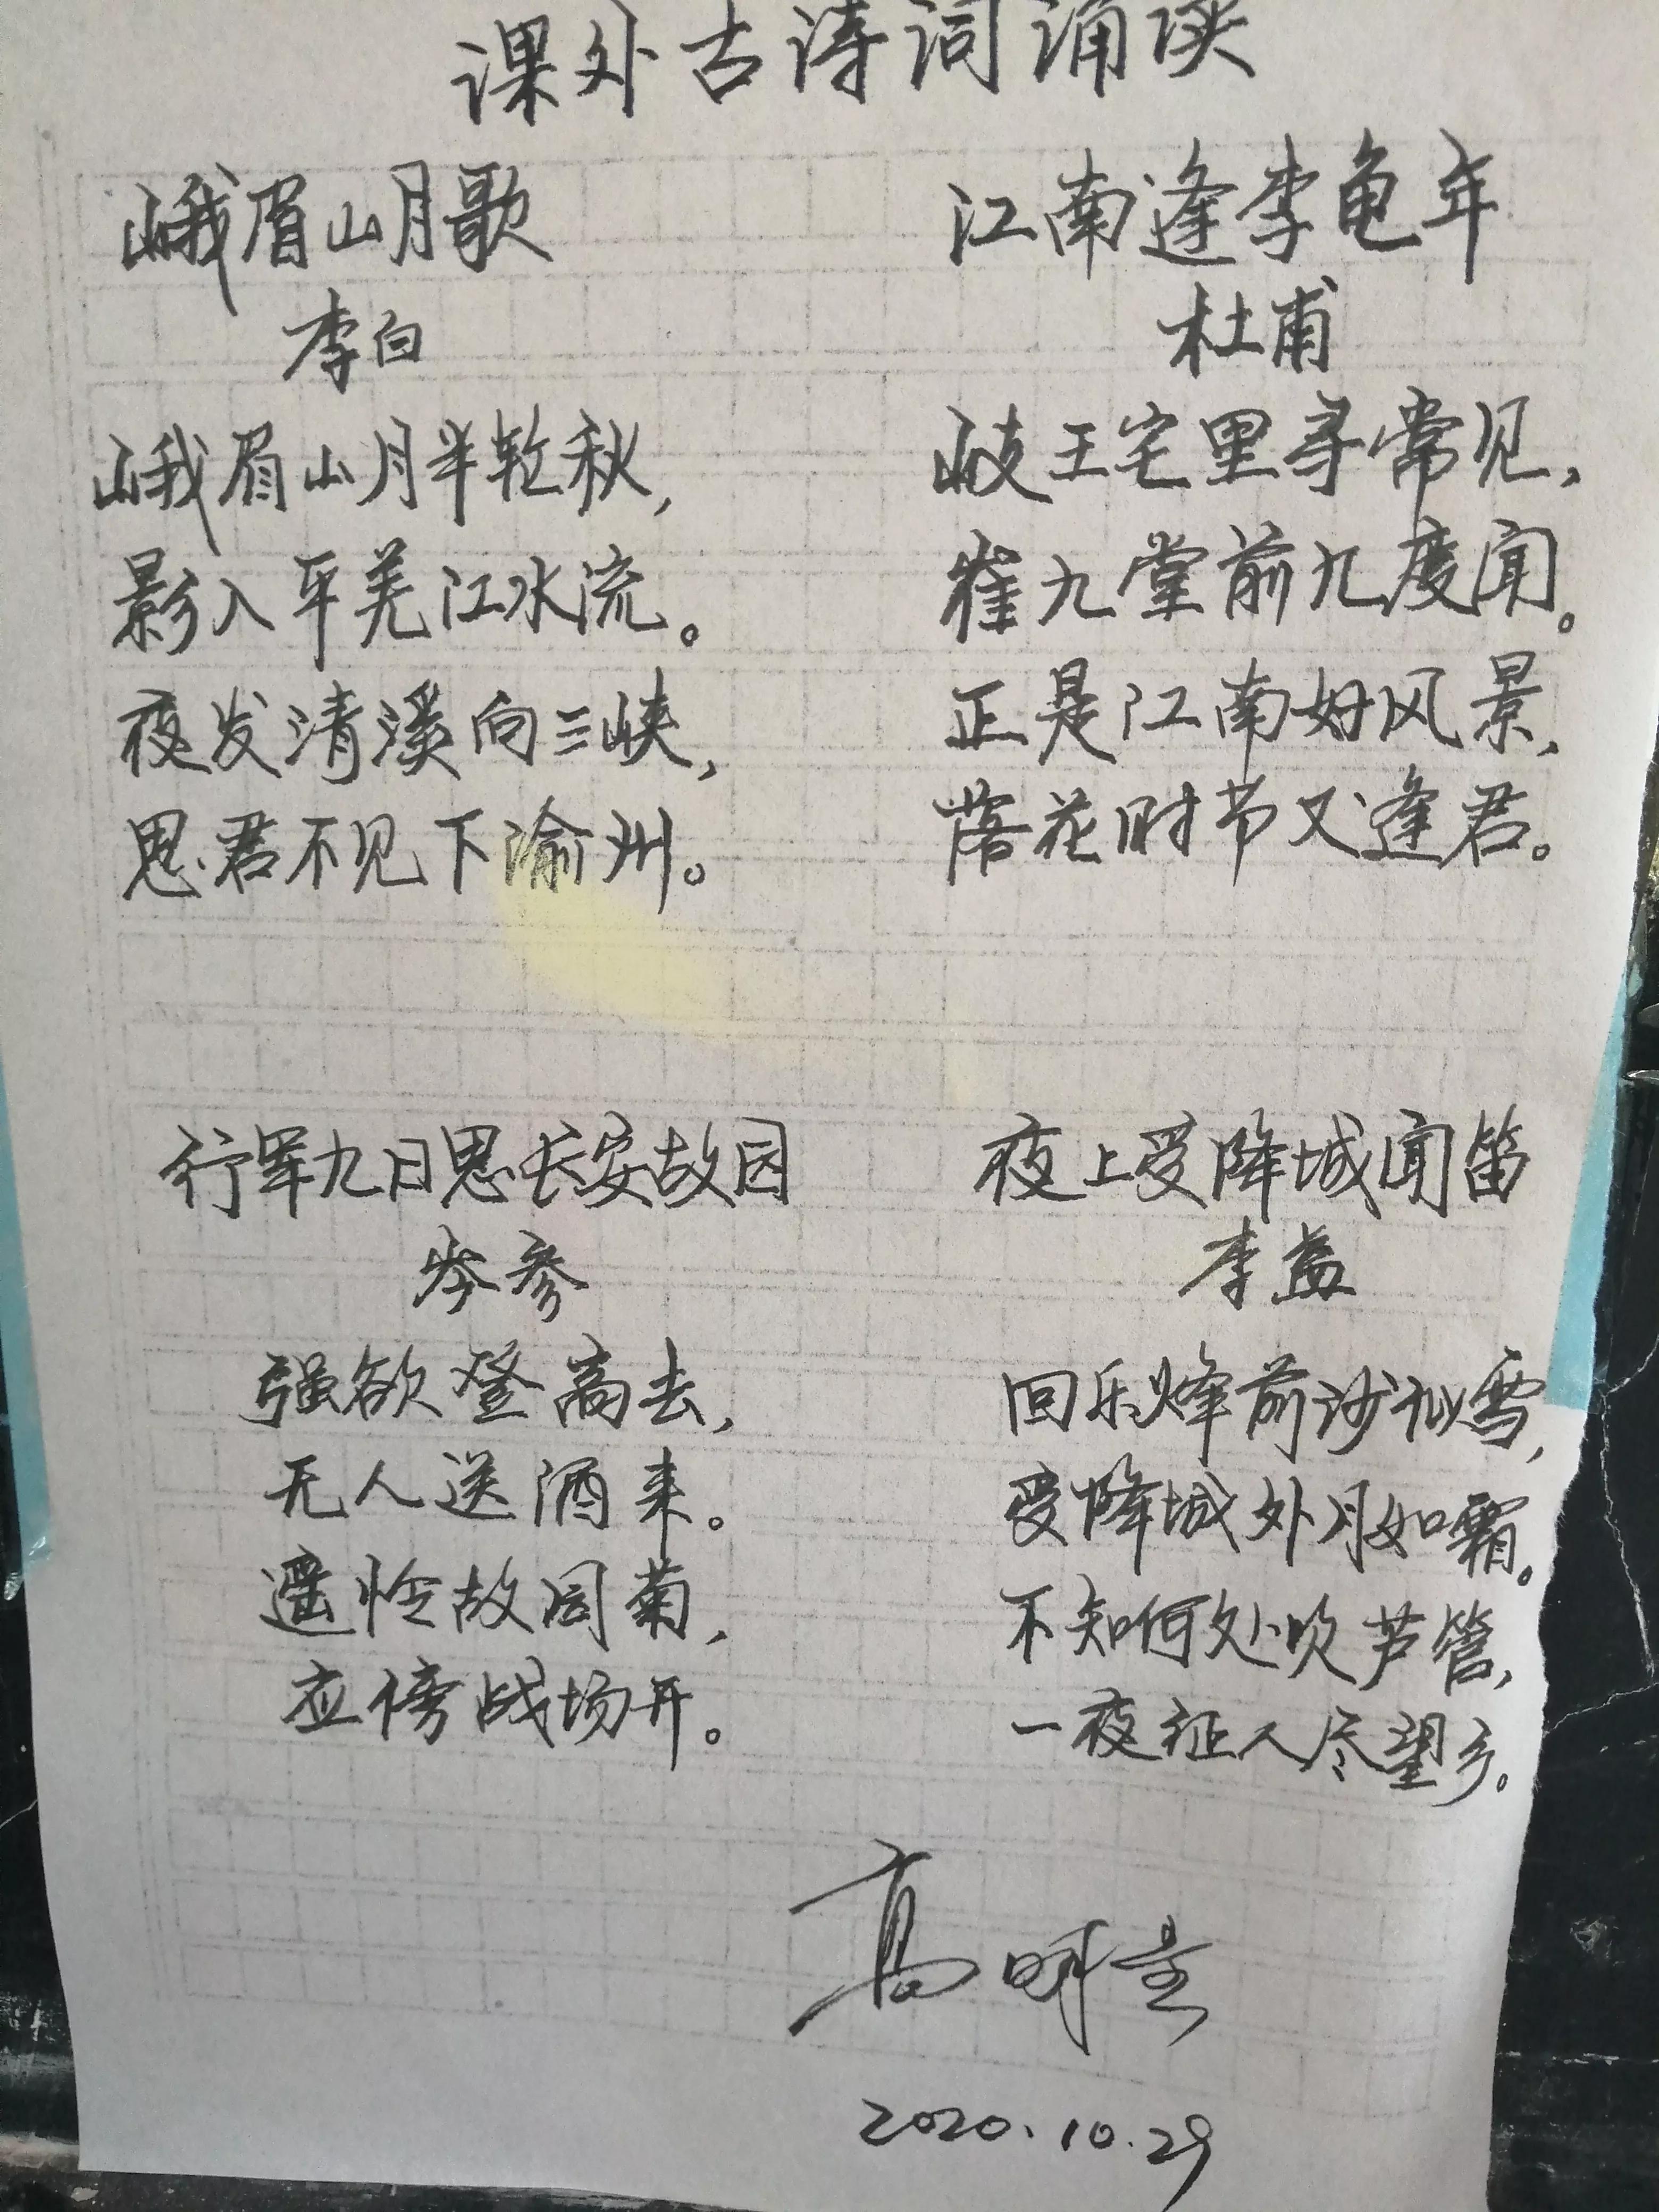 课外古诗词诵读
峨眉山月歌
李白
峨眉山月半轮秋，
影入平羌江水流。
夜发清溪向三峡，
思君不见下渝州。
江南逢李龟年
杜甫
岐王宅里寻常见，
崔九堂前几度闻。
正是江南好风景，
落花时节又逢君。
行军九日思长安故园
岑参
强欲登高去，
无人送酒来。
遥怜故园菊，
应傍战场开。
夜上受降城闻笛
李益
回乐烽前沙似雪，
受降城外月如霜。
不知何处吹芦管，
一夜征人尽望乡。
高明
2020.10.29